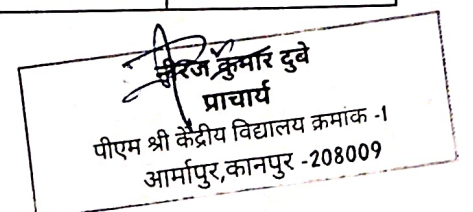 नीरज कुमार दुबे
प्राचार्य
पीएम श्री केंद्रीय विद्यालय क्रमांक -1
आर्मापुर,कानपुर -208009